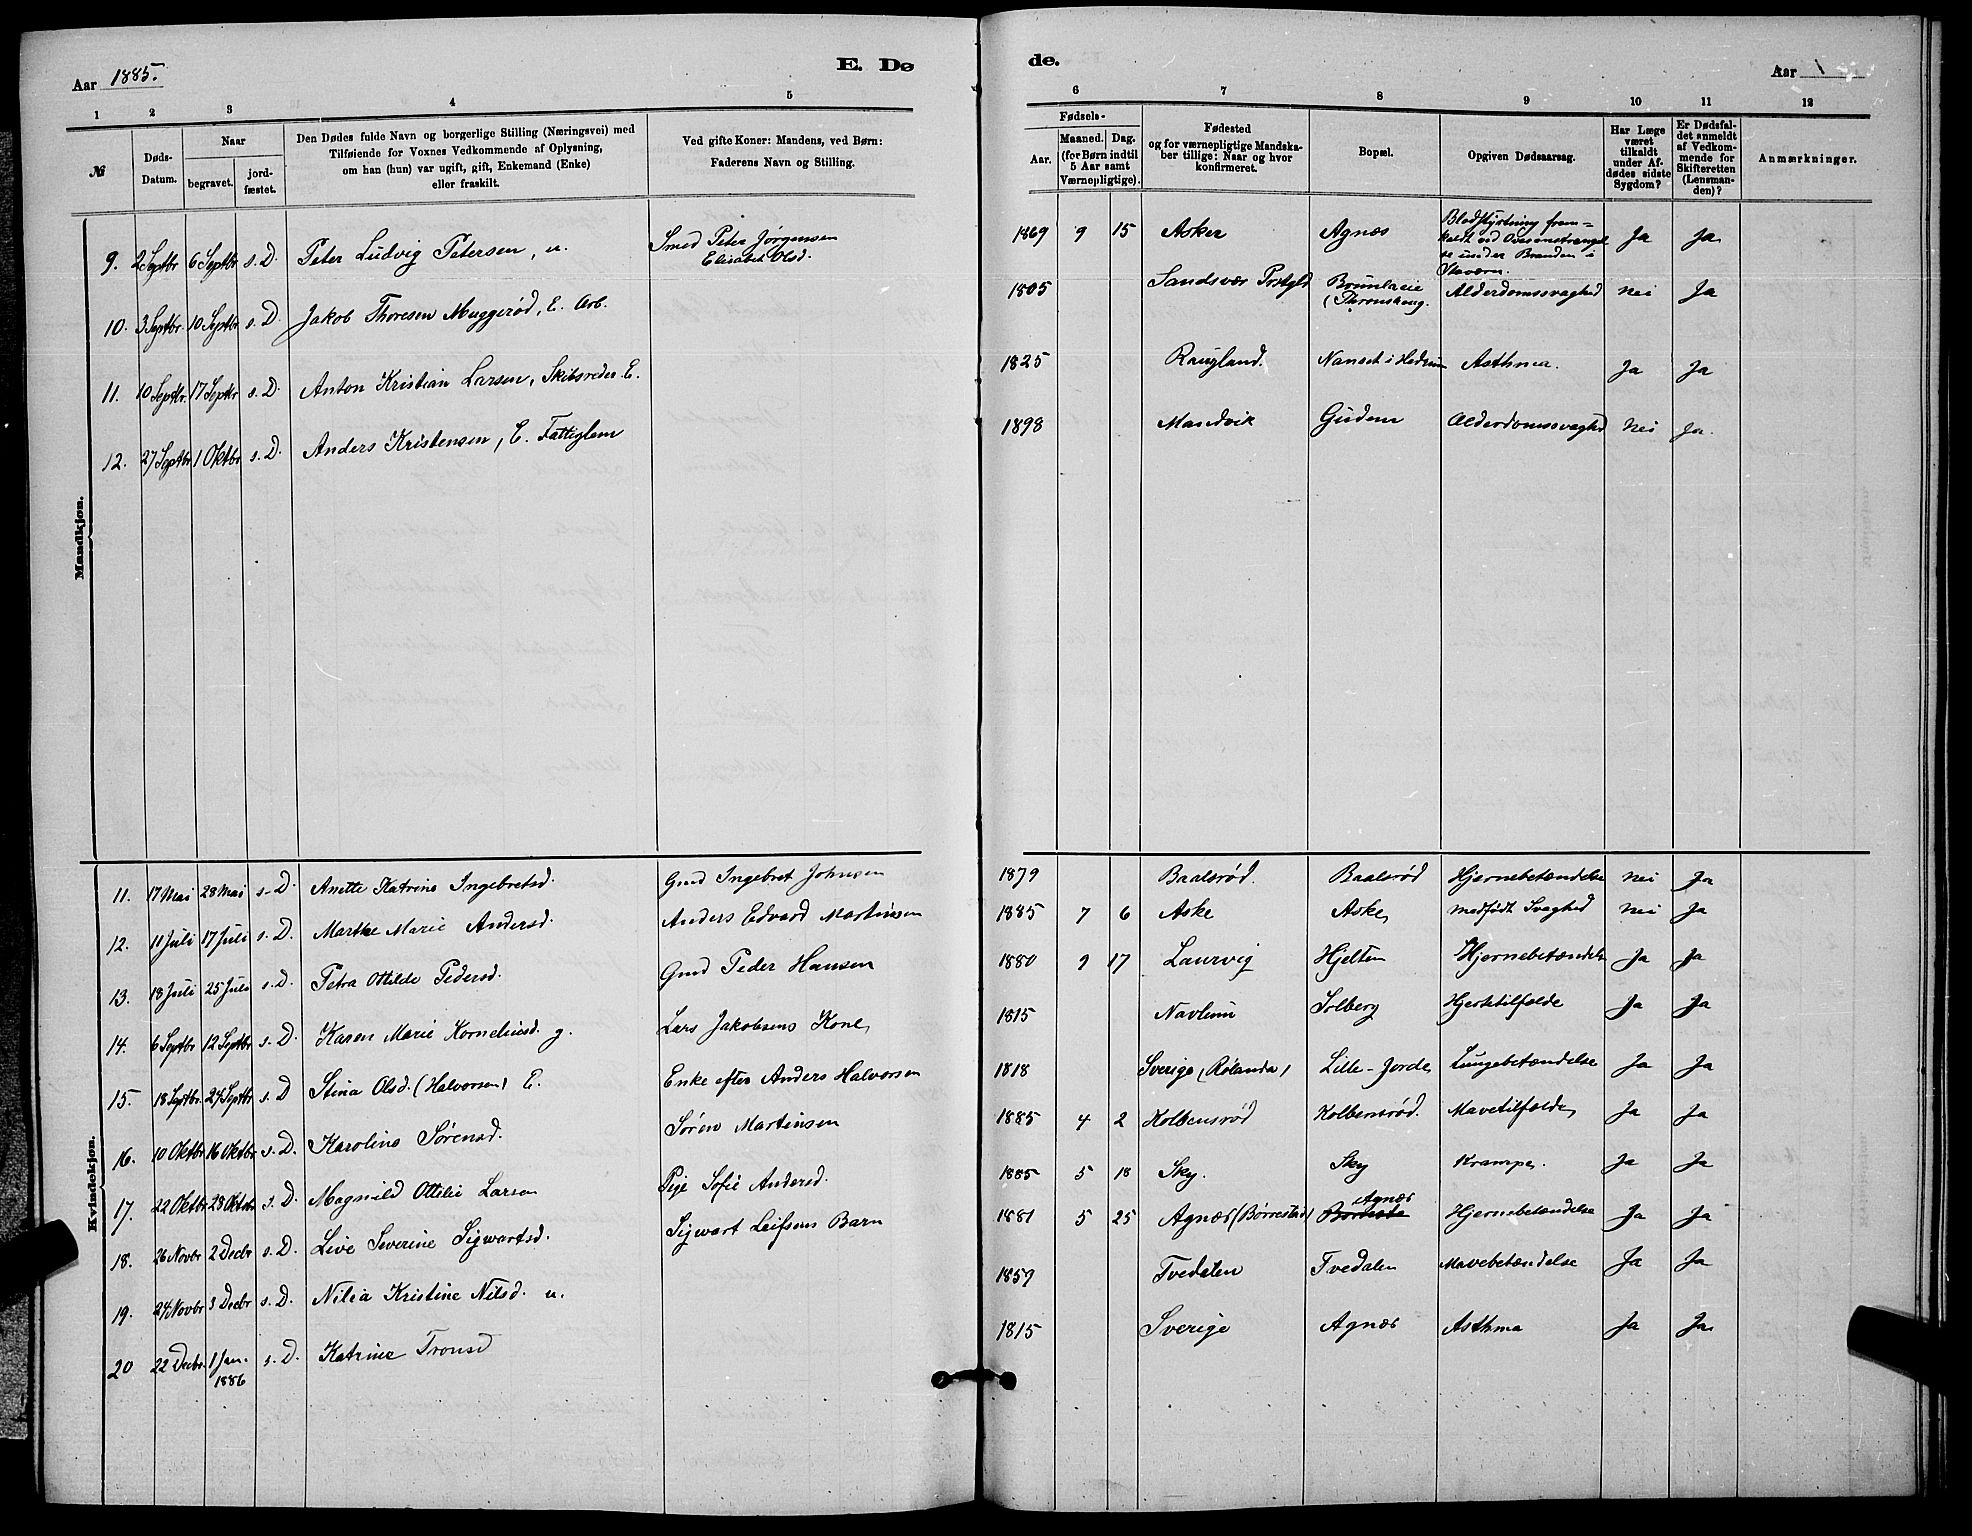 Aar 1885.
E. Dø
de.
Aar 1
1 2 3 4 5
6 7 8 9 10 11 12
№
Døds-Datum.
Naar
begravet.
jord-fæstet.
Den Dødes fulde Navn og borgerlige Stilling (Næringsvei) med
Tilføiende for Voxnes Vedkommende af Oplysning,
om han (hun) var ugift, gift, Enkemand (Enke)
eller fraskilt.
Ved gifte Koner: Mandens, ved Børn:
Faderens Navn og Stilling.
Fødsels-
Aar.
Maaned. Dag.
(for Børn indtil
5 Aar samt
Værnepligtige).
Fødested
og for værnepligtige Mandska-
ber tillige: Naar og hvor
konfirmeret.
Bopæl.
Opgiven Dødsaarsag.
Har Læge
været
tilkaldt
under Af-
dødes sidste
Sygdom?
Er Dødsfal-
det anmeldt
af Vedkom-
mende for
Skifteretten
(Lensman-
den)?
Anmærkninger.
Mandkjøn.
9. 2 Septbr 6 Septbr s. D. Peter Ludvig Petersen, u. Smed Peter Jørgensen
Elisabet Olsd. 1869 9 15 Asker Agnæs Blodstyrtning frem-
kaldt ved Overanstrengel
se under Branden i
Stavern. Ja Ja
10. 3 Septbr. 10 Septbr s. D. Jakob Thoresen Muggerød, E. Arb. 1805 Sandsvær Brunlaeie
Alderdomssvaghed Nei Ja
11. 10 Septbr. 17 Septbr s. D. Anton Kristian Larsen, Skibsreder E. 1825 Raugland. Nanset i Hedrum Asthma. Ja Ja
12. 27 Septbr 1 Oktbr s. D. Anders Kristensen, E. Fattiglem 1898 Mandvik Gudem Alderdomssvaghed Nei Ja.
Kvindekjøn.
11. 17 Mai 28 Mai s. D. Anette Katrine Ingebretsd. Gmd Ingebret Johnsen 1879 Baalsrød. Baalsrød Hjernebetændelse Nei Ja
12. 11 Juli 17 Juli s. D. Marthe Marie Andersd. Anders Edvard Martinsen 1885 7 6 Aske Aske, medfødt Svaghed Nei Ja
13. 18 Juli 25 Juli s. D. Petra Ottilde Pedersd. Gmd Peder Hansen 1880 9 17 Laurvig Hjelten Hjernebetændelse Ja Ja
14. 6 Septbr 12 Septbr s. D. Karen Marie Korneliusd. g. Lars Jakobsens Kone, 1815 Navlum Solberg Hjertetilfælde Ja Ja
15. 18 Septbr. 24 Septbr s. D Stina Olsd. (Halvorsen) E. Enke efter Anders Halvorsen 1818 Sverige (Rølanda) Lille-Jorde, Lungebetændelse Ja Ja
16. 10 Oktbr 16 Oktbr s. D. Karoline Sørensd. Søren Martinsen 1885 4 2 Kolbensrød Kolbensrød. Mavetilfælde, Ja Ja
17. 22 Oktbr 28 Oktbr s. D. Magnild Ottilie Larsen Pige Sofie Andersd. 1885 5 18 Sky. Sky Krampe. Ja Ja
18. 26 Novbr 2 Decbr s. D. Live Severine Sigwartsd. Sigwart Leifsens Barn 1881 5 25 Agnæs (Børrestad) Agnæs Hjernebetændelse Ja Ja
19. 24 Novbr 3 Decbr s. D. Nilia Kristine Nilsd. u. 1859 Tvedalen Tvedalen Mavebetændelse Ja Ja
20 22 Decbr. 1 Jan.
1886 s. D. Katrine Tronsd 1815 Sverige Agnæs Asthma Ja Ja